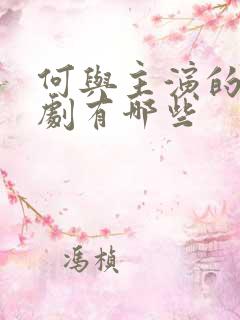 何與主演的
劇有哪些
馮楨